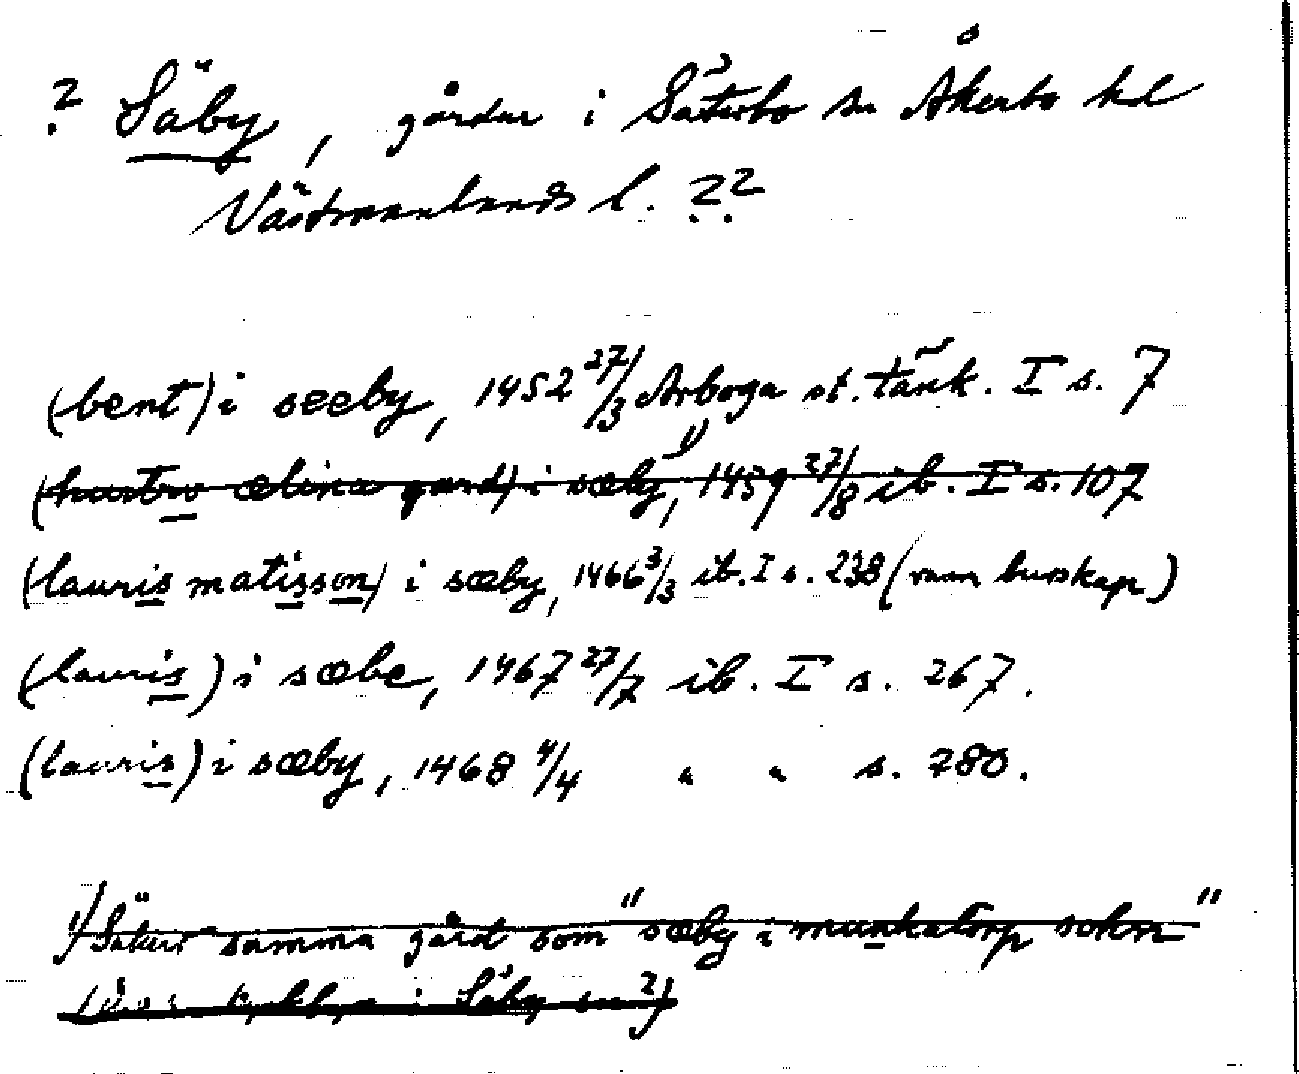 ? Säby, gårdar i Säterbo sn Åkerbo hd
Västmanlands l. ??
(bent) i sæeby, 1452 27/3 Arboga st. tänk. I s. 7
(hustro ælina gard) i sæby 1), 1459 27/8 ib. I s. 107
(lauris matisson) i sæby, 1466 3/3 ib. I s. 238 (vnn burskap)
(lauris) i sæbe, 1467 27/7 ib. I s. 267.
(lauris) i sæby, 1468 4/4 " " s. 280.
1) Säkert samma gård som "sæby i munkatorp sokn"
i Säby sn?)